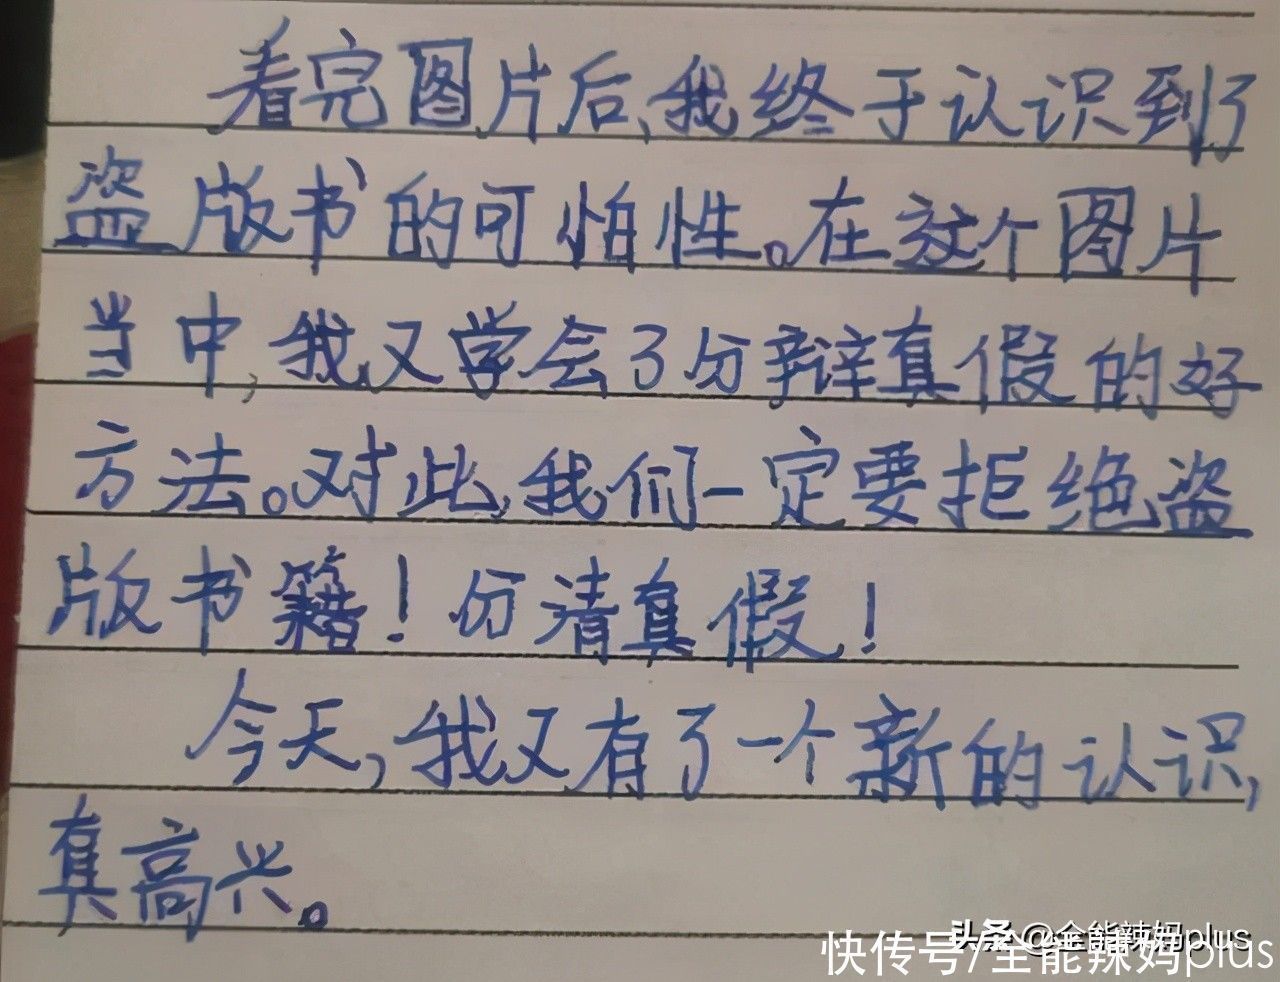 看完图片后,我终于认识到了
盗版书的可怕性。在这个图片
当中,我又学会了分辩真假的好
方法。对此,我们一定要拒绝盗
版书籍！分清真假！
今天,我又有了一个新的认识,
真高兴。
头条 @全能辣妈plus
快传号/全能辣妈plus